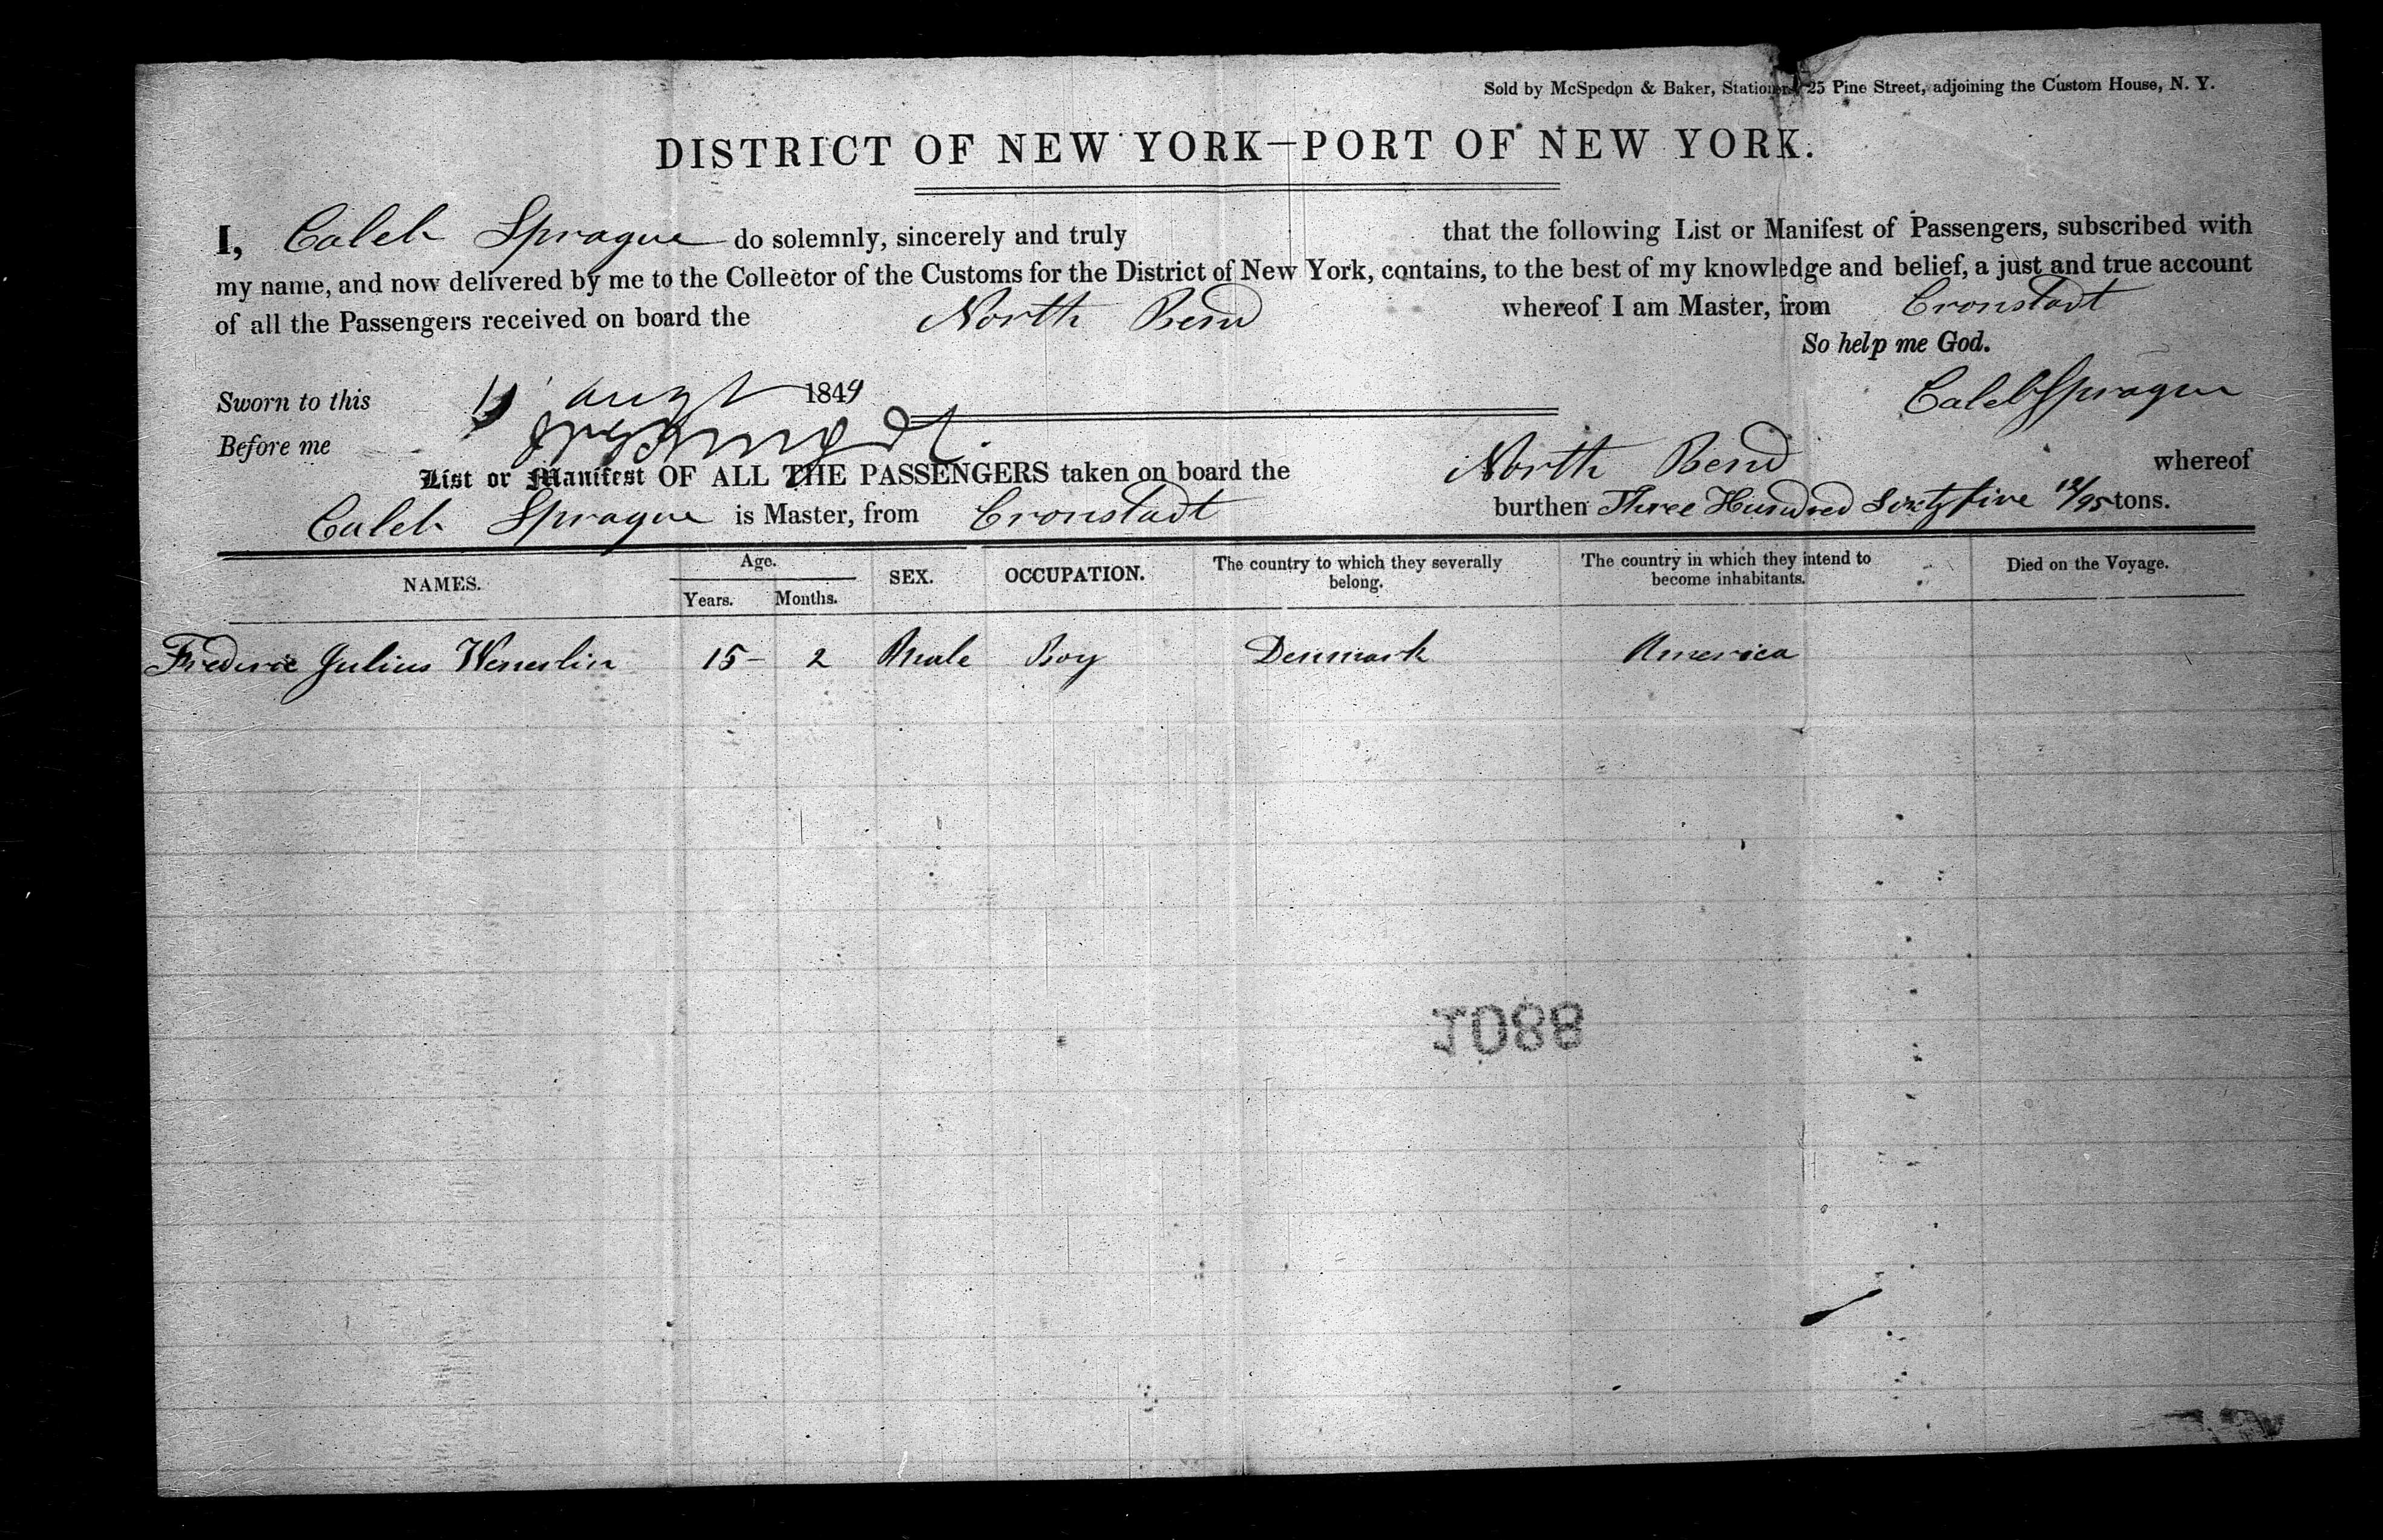 Sold by McSpedon & Baker, Stationers, 25 Pine Street, adjoining the Custom House, N. Y.
DISTRICT OF NEW YORK—PORT OF NEW YORK.
I, Caleb Sprague do solemnly, sincerely and truly that the following List or Manifest of Passengers, subscribed with
my name, and now delivered by me to the Collector of the Customs for the District of New York, contains, to the best of my knowledge and belief, a just and true account
of all the Passengers received on board the North Bend whereof I am Master, from Cronstadt
So help me God.
Sworn to this augt 1849 Caleb Sprague
Before me
List or Manifest OF ALL THE PASSENGERS taken on board the North Bend whereof
Caleb Sprague is Master, from Cronstadt burthen Three Hundred Sixty five 12/95 tons.
NAMES. Age. Years. Months. SEX. OCCUPATION. The country to which they severally belong. The country in which they intend to become inhabitants. Died on the Voyage.
Frederic Julius 15 - 2 Male Boy Denmark America
1088